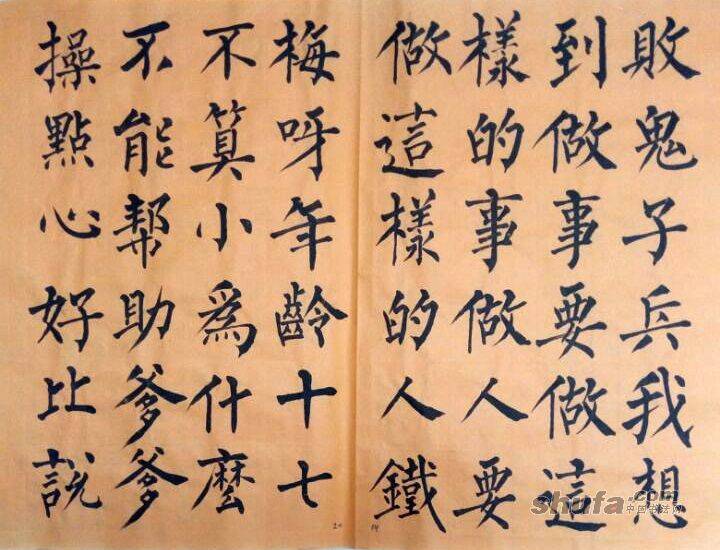 敗鬼子兵我想
到做事要做這
樣的事做人要
做這樣的人鐵
梅呀年齡十七
不算小為什麼
不能幫助爹爹
操點心好比說
20 19
shufa.com
中国书法网